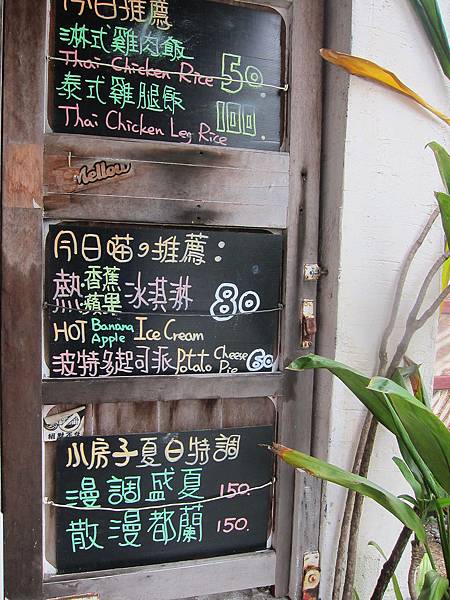 今日推薦
淋式雞肉飯
Thai Chicken Rice 50.
泰式雞腿飯
Thai Chicken Leg Rice 100.
Mellow
今日喵的推薦:
熱香蕉蘋果冰淇淋 80
HOT Banana Apple Ice Cream
波特多起司派 Potato Cheese Pie 60
小房子夏日特調
漫調盛夏 150.
散漫都蘭 150.